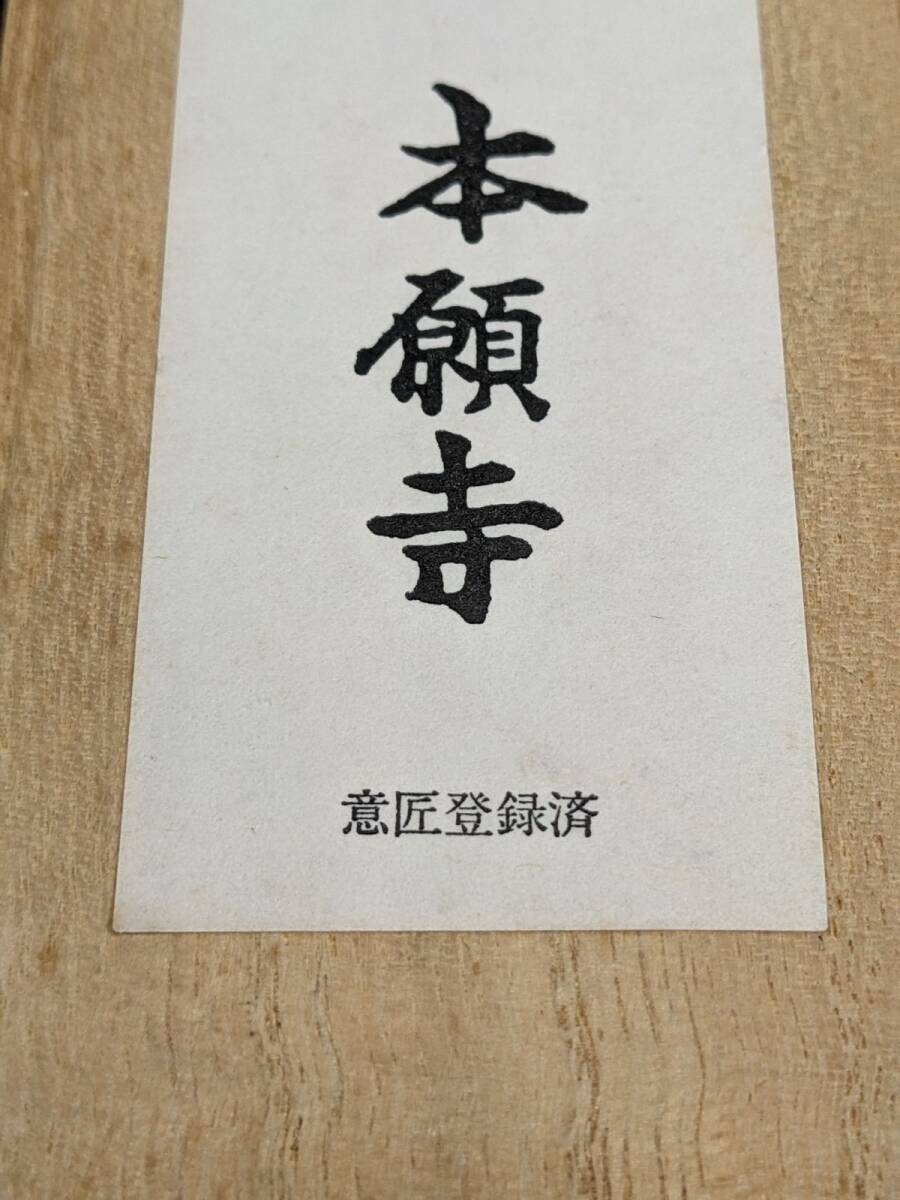 本願寺
意匠登録済